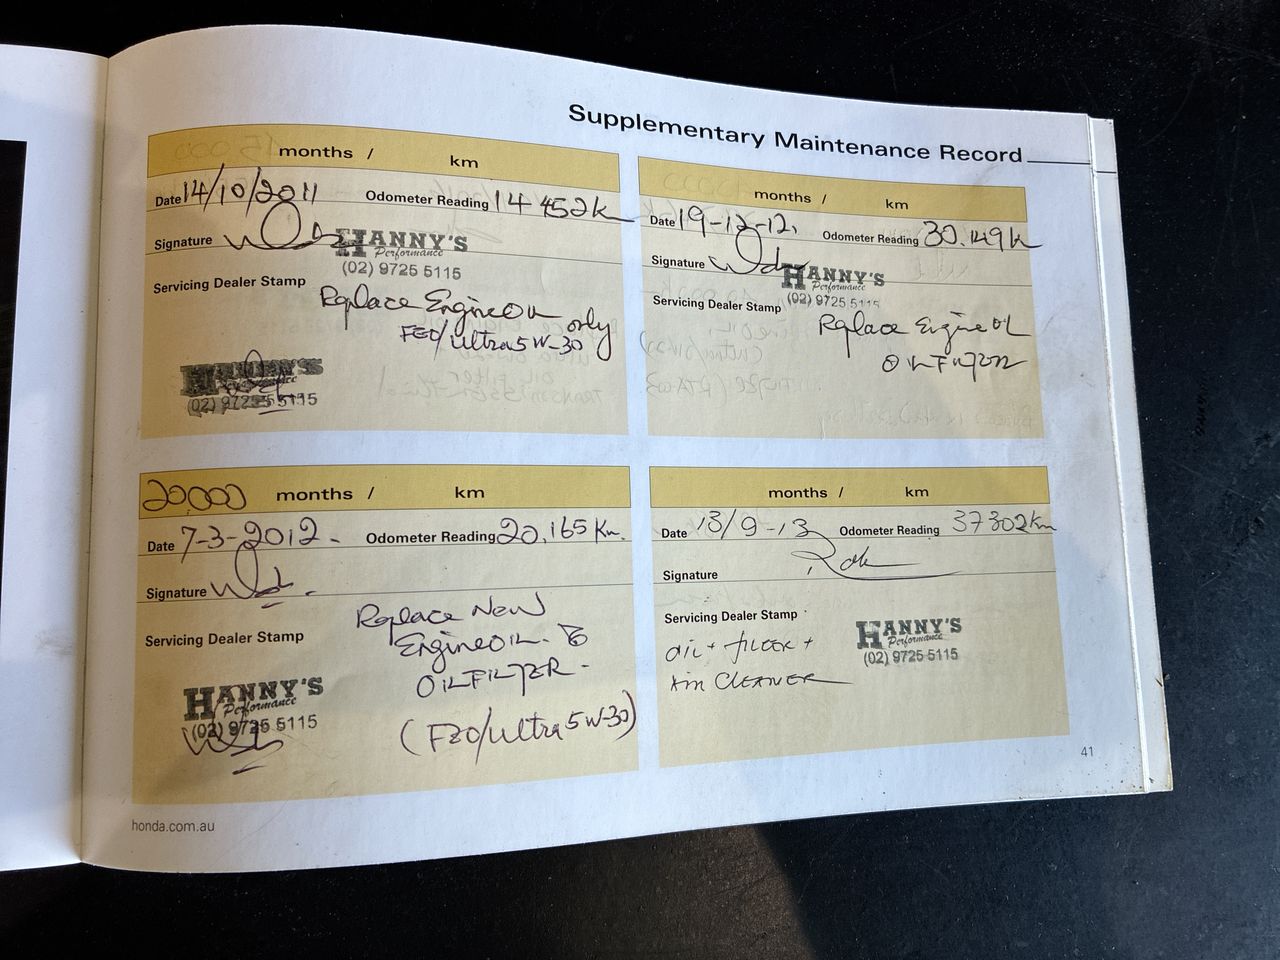 Supplementary Maintenance Record
months / km
Date 14/10/2011 Odometer Reading 14 452K
Signature
HANNY'S
Performance
(02) 9725 5115
Servicing Dealer Stamp
Replace Engine OIL only
FEO/Ultra 5W-30
HANNY'S
Performance
(02) 9725 5115
months / km
Date 19-12-12, Odometer Reading 30.149K
Signature
HANNY'S
Performance
(02) 9725 5115
Servicing Dealer Stamp
Replace Engine OIL
OIL FILTER
20,000 months / km
Date 7-3-2012. Odometer Reading 20,165 Km.
Signature
Servicing Dealer Stamp
Replace New
Engine OIL. &
OIL FILTER -
(FEO/Ultra 5W-30)
HANNY'S
Performance
(02) 9725 5115
months / km
Date 13/9-13 Odometer Reading 37302Km
Signature
Servicing Dealer Stamp
HANNY'S
Performance
(02) 9725 5115
OIL + FILTER +
AIR CLEANER
41
honda.com.au